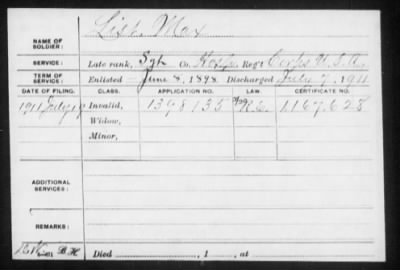 NAME OF SOLDIER: List, Max
SERVICE: Late rank, Sgt Co. Hosp. Reg't Corps U.S.A.
TERM OF SERVICE: Enlisted June 8, 1898 Discharged July 7, 1911
DATE OF FILING. CLASS. APPLICATION NO. LAW. CERTIFICATE NO.
1911 July 19 Invalid, 1398135 1167628
Widow,
Minor,
ADDITIONAL SERVICES:
REMARKS:
Died , 1 , at